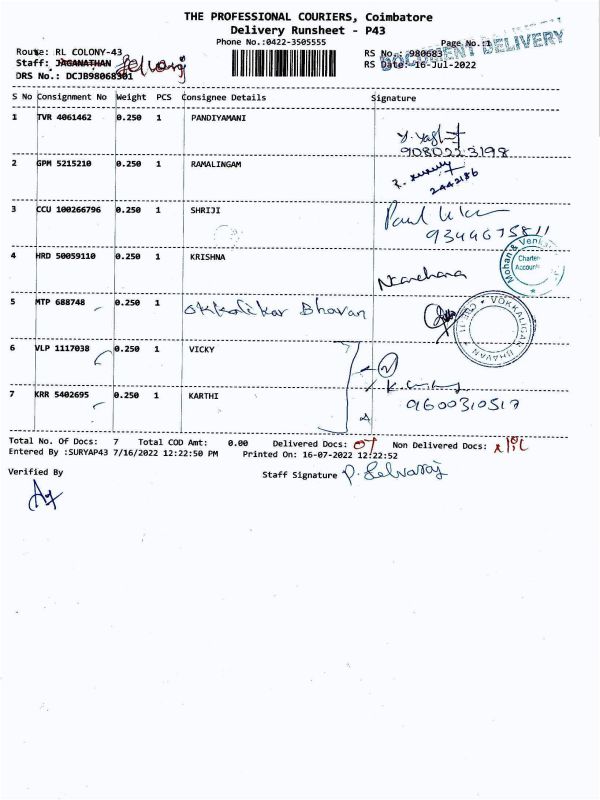 THE PROFESSIONAL COURIERS, Coimbatore
Delivery Runsheet - P43
Phone No.:0422-3505555
Page No.:1
DOCUMENT DELIVERY
Route: RL COLONY-43
RS No.: 980683
Staff: JAGANATHAN Selvaraj
RS Date: 16-Jul-2022
DRS No.: DCJB98068301
S No Consignment No Weight PCS Consignee Details Signature
1 TVR 4061462 0.250 1 PANDIYAMANI
9080223198
2 GPM 5215210 0.250 1 RAMALINGAM
2442186
3 CCU 100266796 0.250 1 SHRIJI
Paul
9344675811
4 HRD 50059110 0.250 1 KRISHNA
Mohan & Venk
Charter
Accounts
5 MTP 688748 0.250 1 Okkalikar Bhavan
VOKKALIGAR BHAVAN
6 VLP 1117038 0.250 1 VICKY
7 KRR 5402695 0.250 1 KARTHI
9600310517
Total No. Of Docs: 7 Total COD Amt: 0.00 Delivered Docs: 07 Non Delivered Docs: Nil
Entered By :SURYAP43 7/16/2022 12:22:50 PM Printed On: 16-07-2022 12:22:52
Verified By
Staff Signature P. Selvaraj